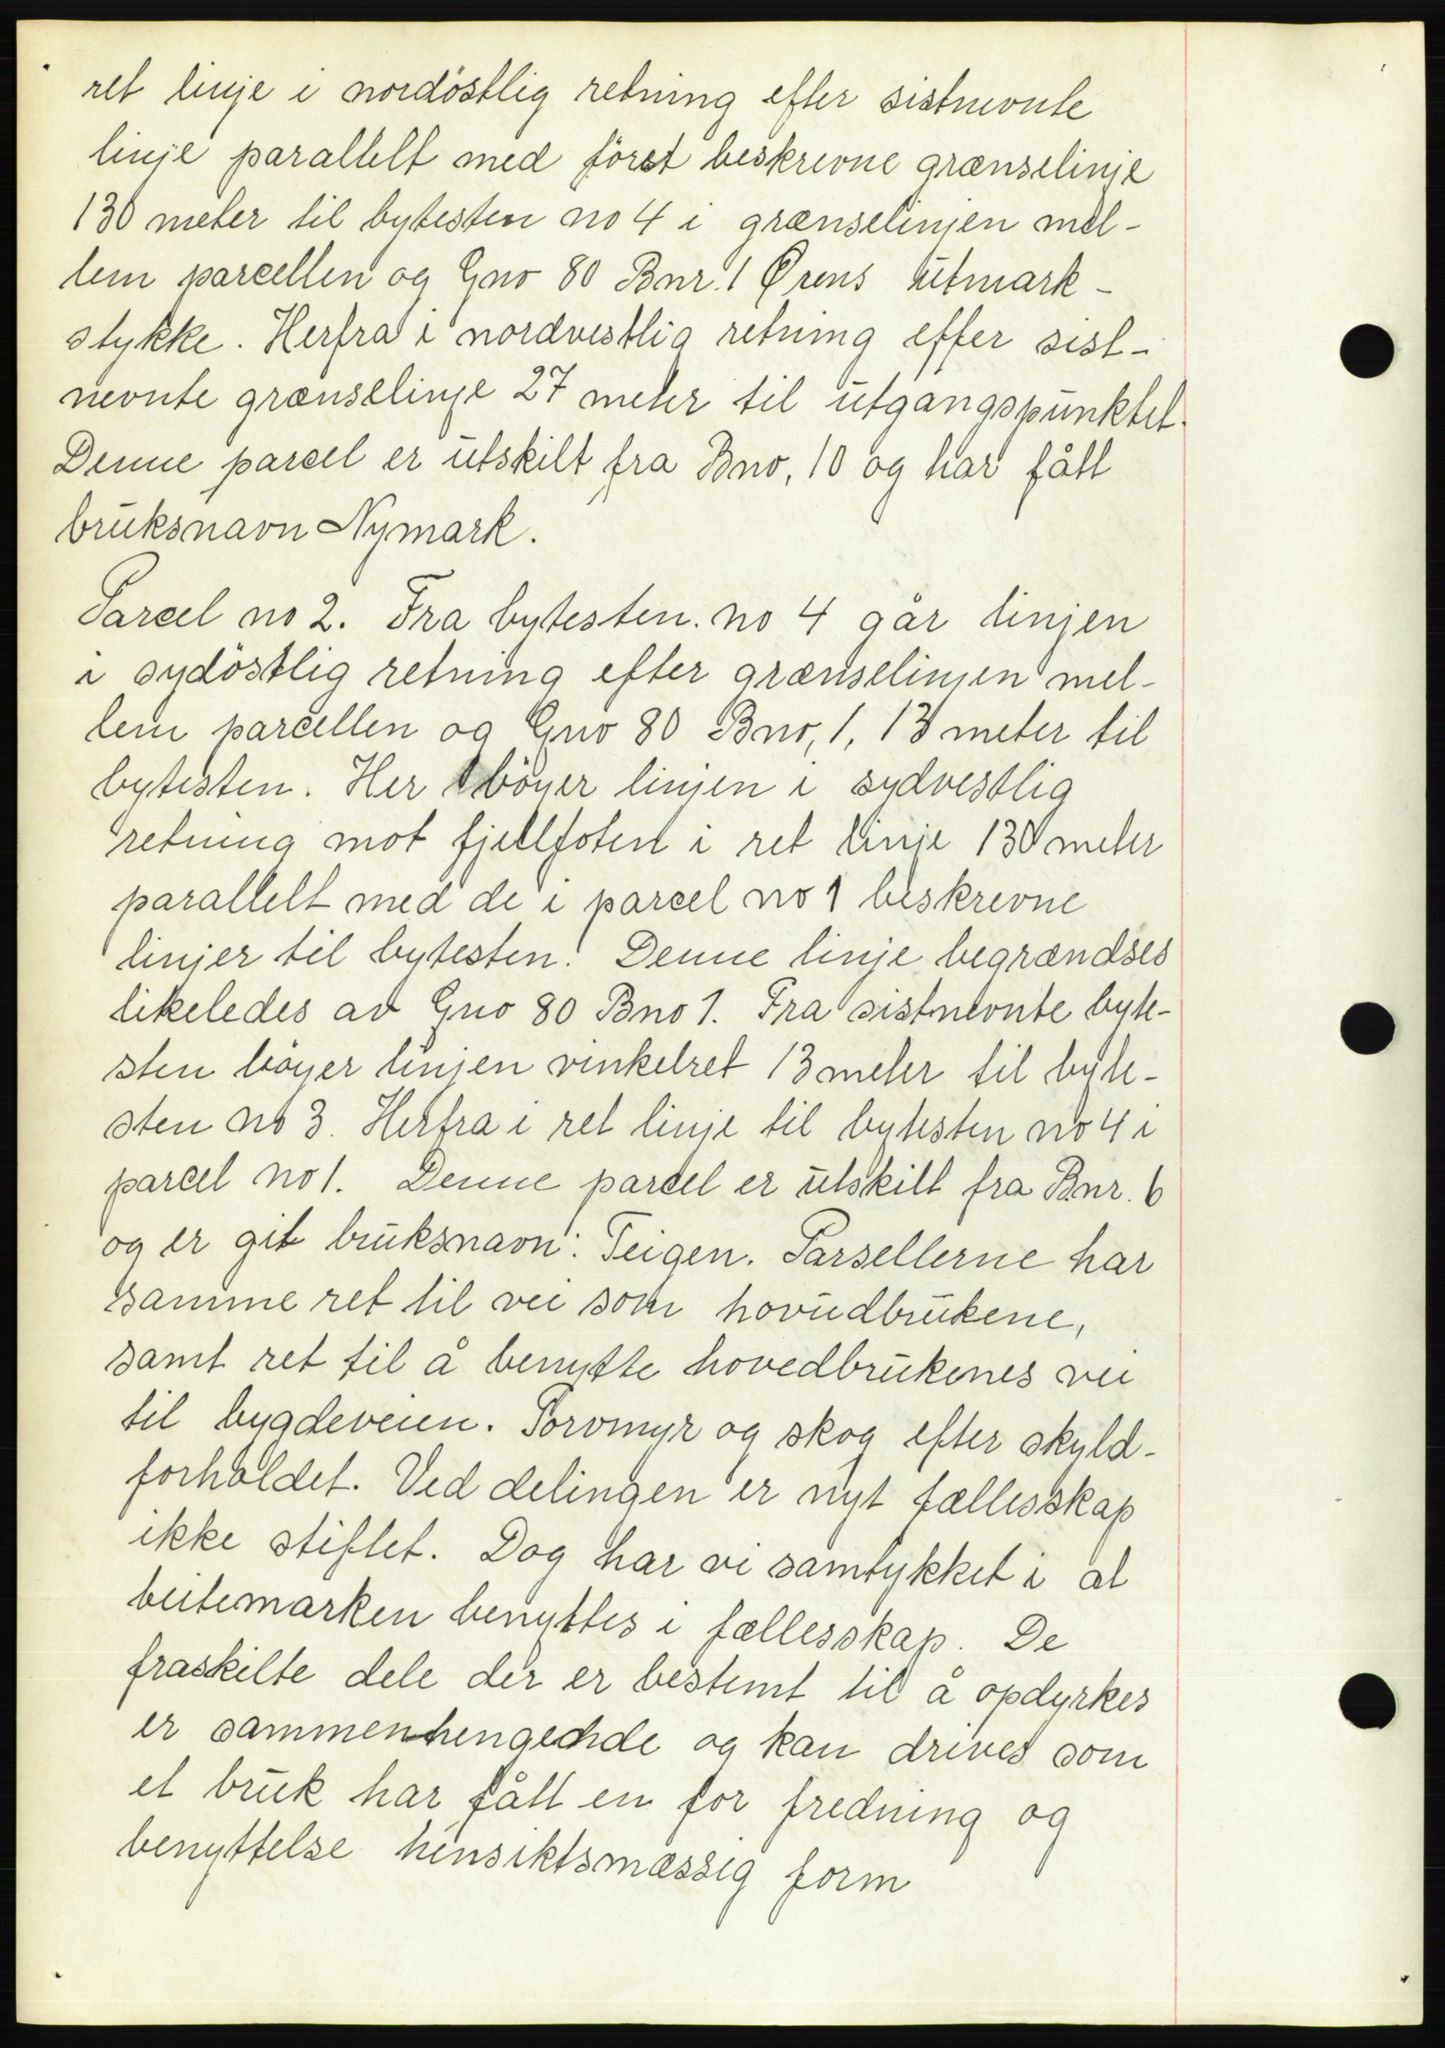 ret linje i nordöstlig retning efter sistnevnte
linje parallelt med först beskrevne grænselinje
130 meter til bytesten no 4 i grænselinjen mel-
lem parcellen og Gno 80 Bnr. 1 Ørens utmark-
stykke. Herfra i nordvestlig retning efter sist-
nevnte grænselinje 27 meter til utgangspunktet.
Denne parcel er utskilt fra Bno, 10 og har fått
bruksnavn Nymark.
Parcel no 2. Fra bytesten. no 4 går linjen
i sydöstlig retning efter grænselinjen mel-
lem parcellen og Gno 80 Bno, 1, 13 meter til
bytesten. Her böyer linjen i sydvestlig
retning mot fjellfoten i ret linje 130 meter
parallelt med de i parcel no 1 beskrevne
linjer til bytesten. Denne linje begrændses
likeledes av Gno 80 Bno 1. Fra sistnevnte byte-
sten böyer linjen vinkelret 13 meter til byte-
sten no 3. Herfra i ret linje til bytesten no 4 i
parcel no 1. Denne parcel er utskilt fra Bnr. 6
og er git bruksnavn: Teigen. Parsellerne har
samme ret til vei som hovudbrukene,
samt ret til å benytte hovedbrukenes vei
til bygdeveien. Torvmyr og skog efter skyld-
forholdet. Ved delingen er nyt fællesskap
ikke stiftet. Dog har vi samtykket i at
beitemarken benyttes i fællesskap. De
fraskilte dele der er bestemt til å opdyrkes
er sammenhengende og kan drives som
et bruk har fått en for fredning og
benyttelse hensiktsmæssig form